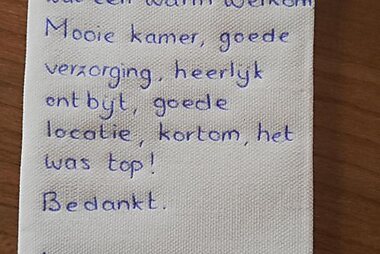 wat een warm welkom
Mooie kamer, goede
verzorging, heerlijk
ontbijt, goede
locatie, kortom, het
was top!
Bedankt.